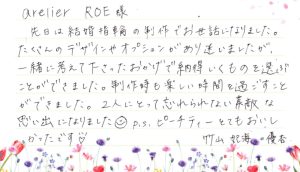 arelier ROE 様
先日は結婚指輪の制作でお世話になりました。
たくさんのデザインやオプションがあり迷いましたが、
一緒に考えて下さったおかげで納得いくものを選ぶ
ことができました。制作時も楽しい時間を過ごすこと
ができました。2人にとって忘れられない素敵な
思い出になりました☺ p.s. ピーチティーとてもおいし
かったです
竹山